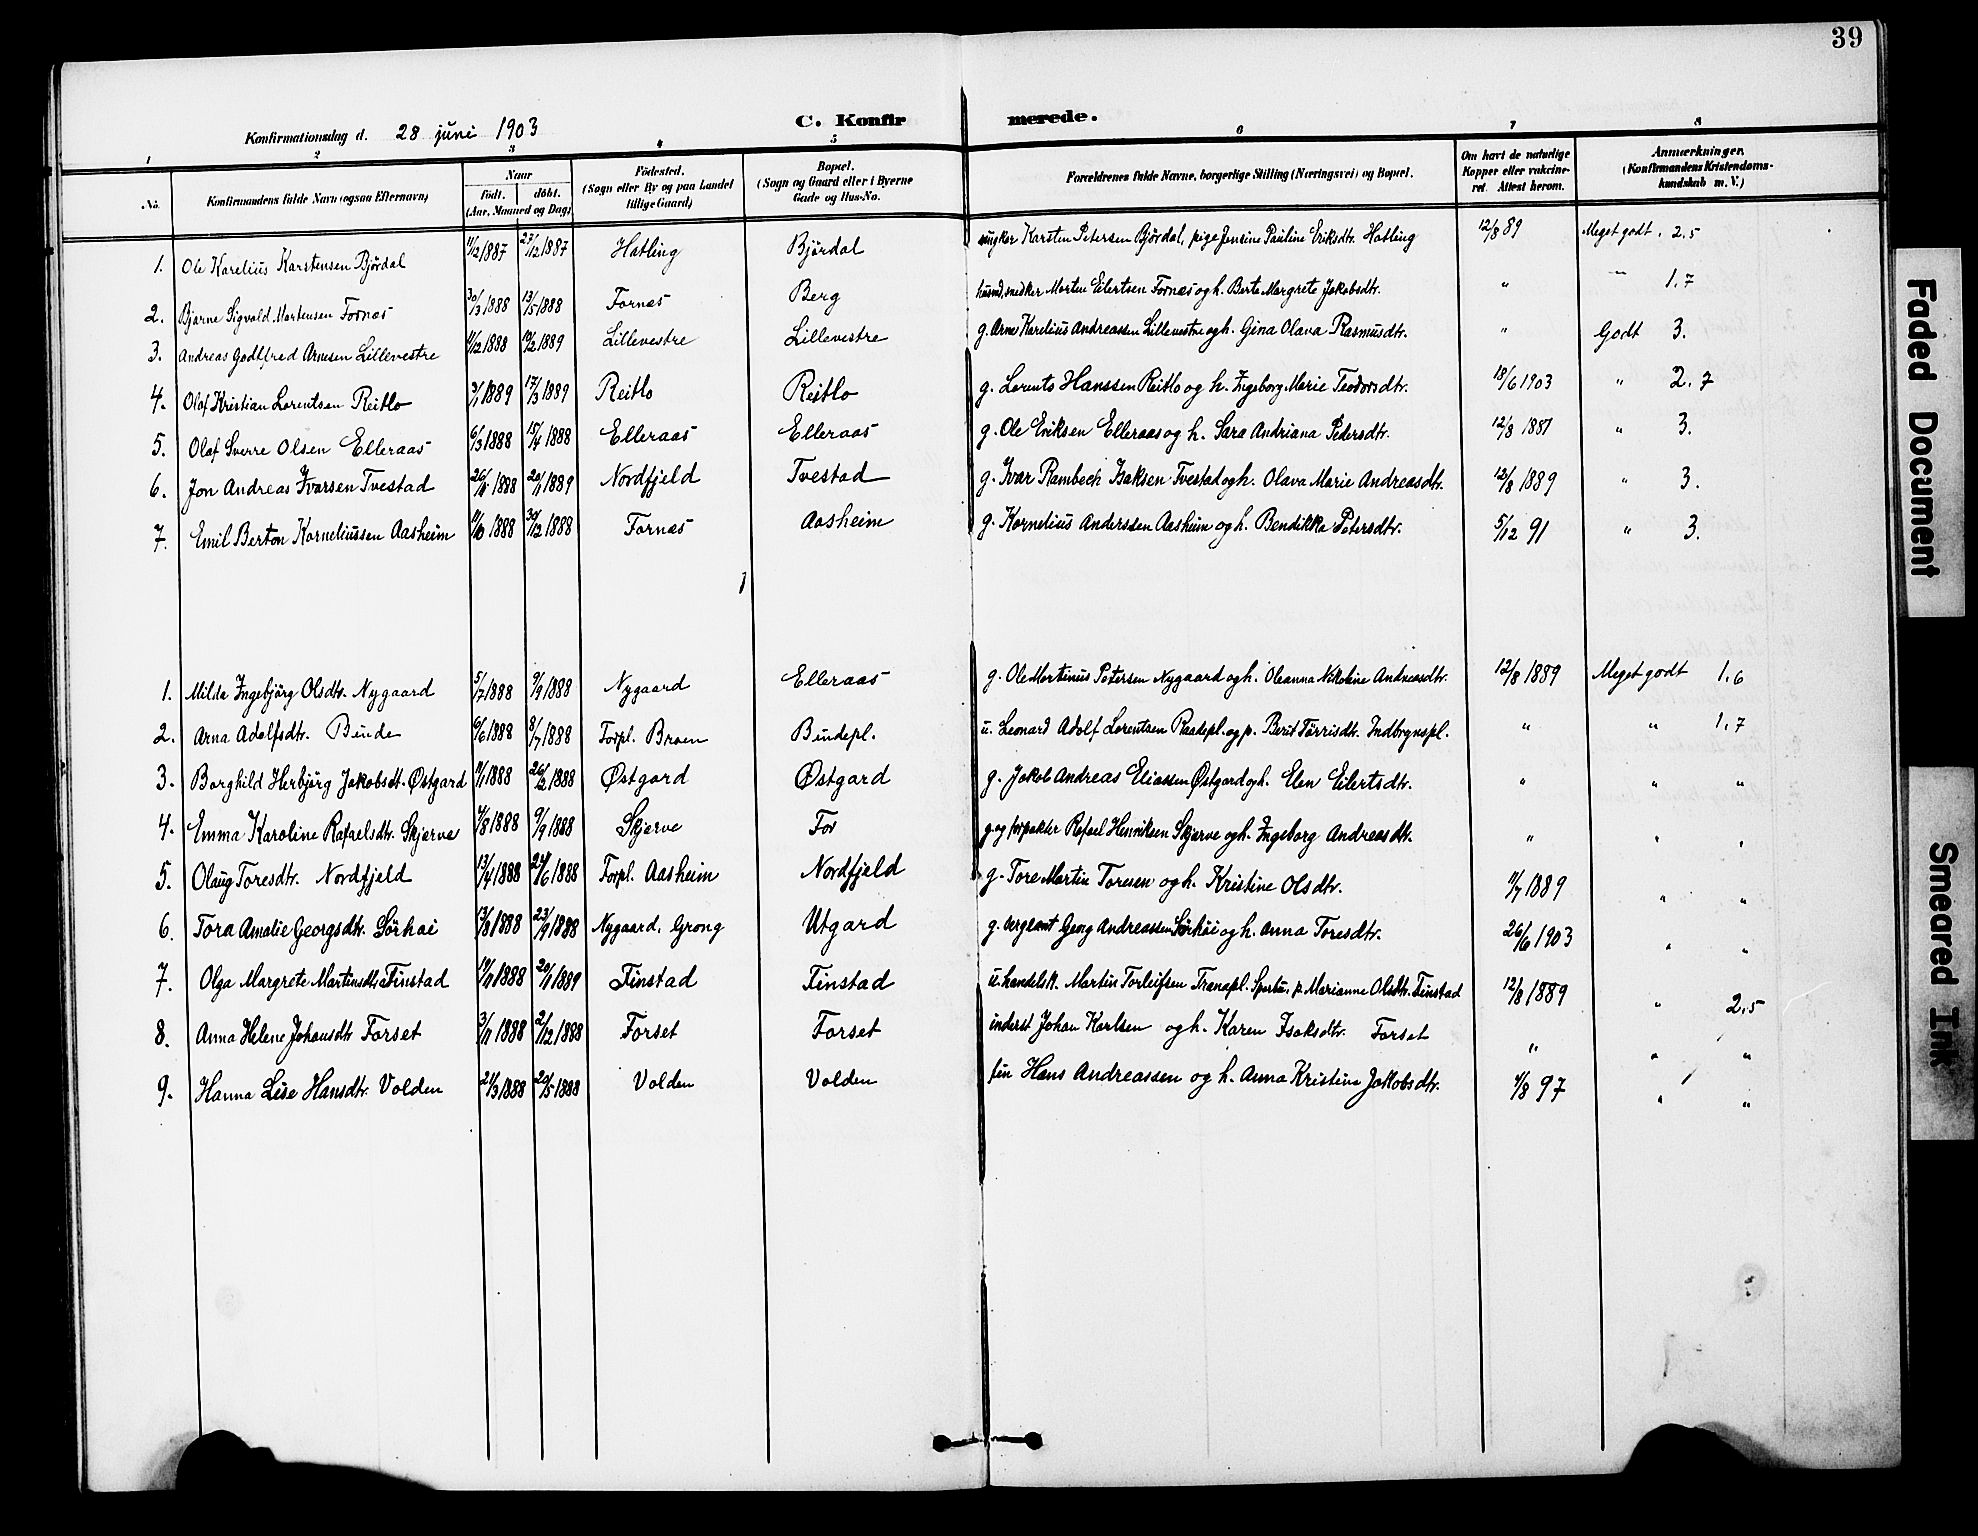 39
Konfirmationsdag d. 28 juni 1903 C. Konfirmerede.
1 2 3 4 5 6 7 8
No. Konfirmandens fulde Navn (ogsaa Efternavn) Naar födt. döbt. (Aar, Maaned og Dag) Födested. (Sogn eller By og paa Landet tillige Gaard) Bopæl. (Sogn og Gaard eller i Byerne Gade og Hus-No. Forældrenes fulde Navne, borgerlige Stilling (Næringsvei) og Bopæl. Om havt de naturlige Kopper eller vakcineret. Attest herom. Anmærkninger. (Konfirmandens Kristendomskundskab m. V.)
1. Ole Karelius Karstensen Bjørdal 11/12 1887 27/12 1887 Hatling Bjørdal ungkar Karsten Petersen Bjørdal, pige Jensine Pauline Eriksdtr. Hatling 12/8 89 Meget godt. 2.5
2. Bjarne Sigvald Martensen Fornæs 30/3 1888 13/5 1888 Fornæs Berg husmd, snedker Morten Eilertsen Fornæs og h. Berta Margrete Jakobsdtr. " " 1.7
3. Andreas Godtfred Arnesen Lillevestre 11/12 1888 10/2 1889 Lillevestre Lillevestre g. Arne Karelius Andreassen Lillevestre og h. Gina Olava Rasmusdtr. " Godt 3.
4. Olaf Kristian Lorentsen Reitlo 3/1 1889 17/3 1889 Reitlo Reitlo g. Lorents Hanssen Reitlo og h. Ingeborg Marie Teodorsdtr. 18/6 1903 " 2.7
5. Olaf Sverre Olsen Elleraas 6/3 1888 15/4 1888 Elleraas Elleraas g. Ole Eriksen Elleraas og h. Sara Andriana Pedersdtr. 12/8 1887 " 3.
6. Jon Andreas Ivarsen Tvestad 26/11 1888 20/1 1889 Nordfjeld Tvestad g. Ivar Rambech Isaksen Tvestad og h. Olava Marie Andreasdtr. 12/8 1889 " 3.
7. Emil Berton Korneliussen Aasheim 11/10 1888 30/12 1888 Fornæs Aasheim g. Kornelius Anderssen Aasheim og h. Bendikka Petersdtr. 5/12 91 " 3.
1. Milda Ingebjörg Olsdtr. Nygaard 5/7 1888 9/9 1888 Nygaard Elleraas g. Ole Martinus Petersen Nygaard og h. Oleanna Nikoline Andreasdtr. 12/8 1889 Meget godt 1.6
2. Arna Adolfsdtr. Binde 6/6 1888 8/7 1888 Forpl. Braen Bindepl. u. Leonard Adolf Lorentsen Raadepl. og p. Berit Törrisdtr. Indbrynspl. " " 1.7
3. Borghild Herbjörg Jakobsdt. Østgard 11/1 1888 26/2 1888 Østgard Østgard g. Jakob Andreas Eliassen Østgard og h. Elen Eilertsdtr. " " "
4. Emma Karoline Rafaelsdtr. Skjerve 4/8 1888 9/9 1888 Skjerve For g. og forpakter Rafael Henriksen Skjerve og h. Ingeborg Andreasdt. " " "
5. Olaug Toresdtr. Nordfjeld 13/4 1888 24/6 1888 Forpl. Aasheim Nordfjeld g. Tore Martin Toresen og h. Kristine Olsdtr. 11/7 1889 " "
6. Tora Amalie Georgsdtr. Sörhöi 13/8 1888 23/9 1888 Nygaard, Grong Utgard g. sergeant Georg Andreassen Sörhöi og h. Anna Toresdtr. 26/6 1903 " "
7. Olga Margrete Martinsdtr. Tinstad 19/11 1888 20/1 1889 Tinstad Tinstad u. handelsk. Martin Torleifsen Tranapl. Sparbu, p. Marianne Olsdtr. Tinstad 12/8 1889 " 2.5
8. Anna Helene Johansdtr Forset 3/11 1888 2/12 1888 Forset Forset inderst Johan Karlsen og h. Karen Isaksdtr. Forset " " "
9. Hanna Lise Hansdtr. Volden 21/3 1888 20/5 1888 Volden Volden fin Hans Andreassen og h. Anna Kristina Jakobsdtr. 4/8 97 " "
Faded Document
Smeared Ink